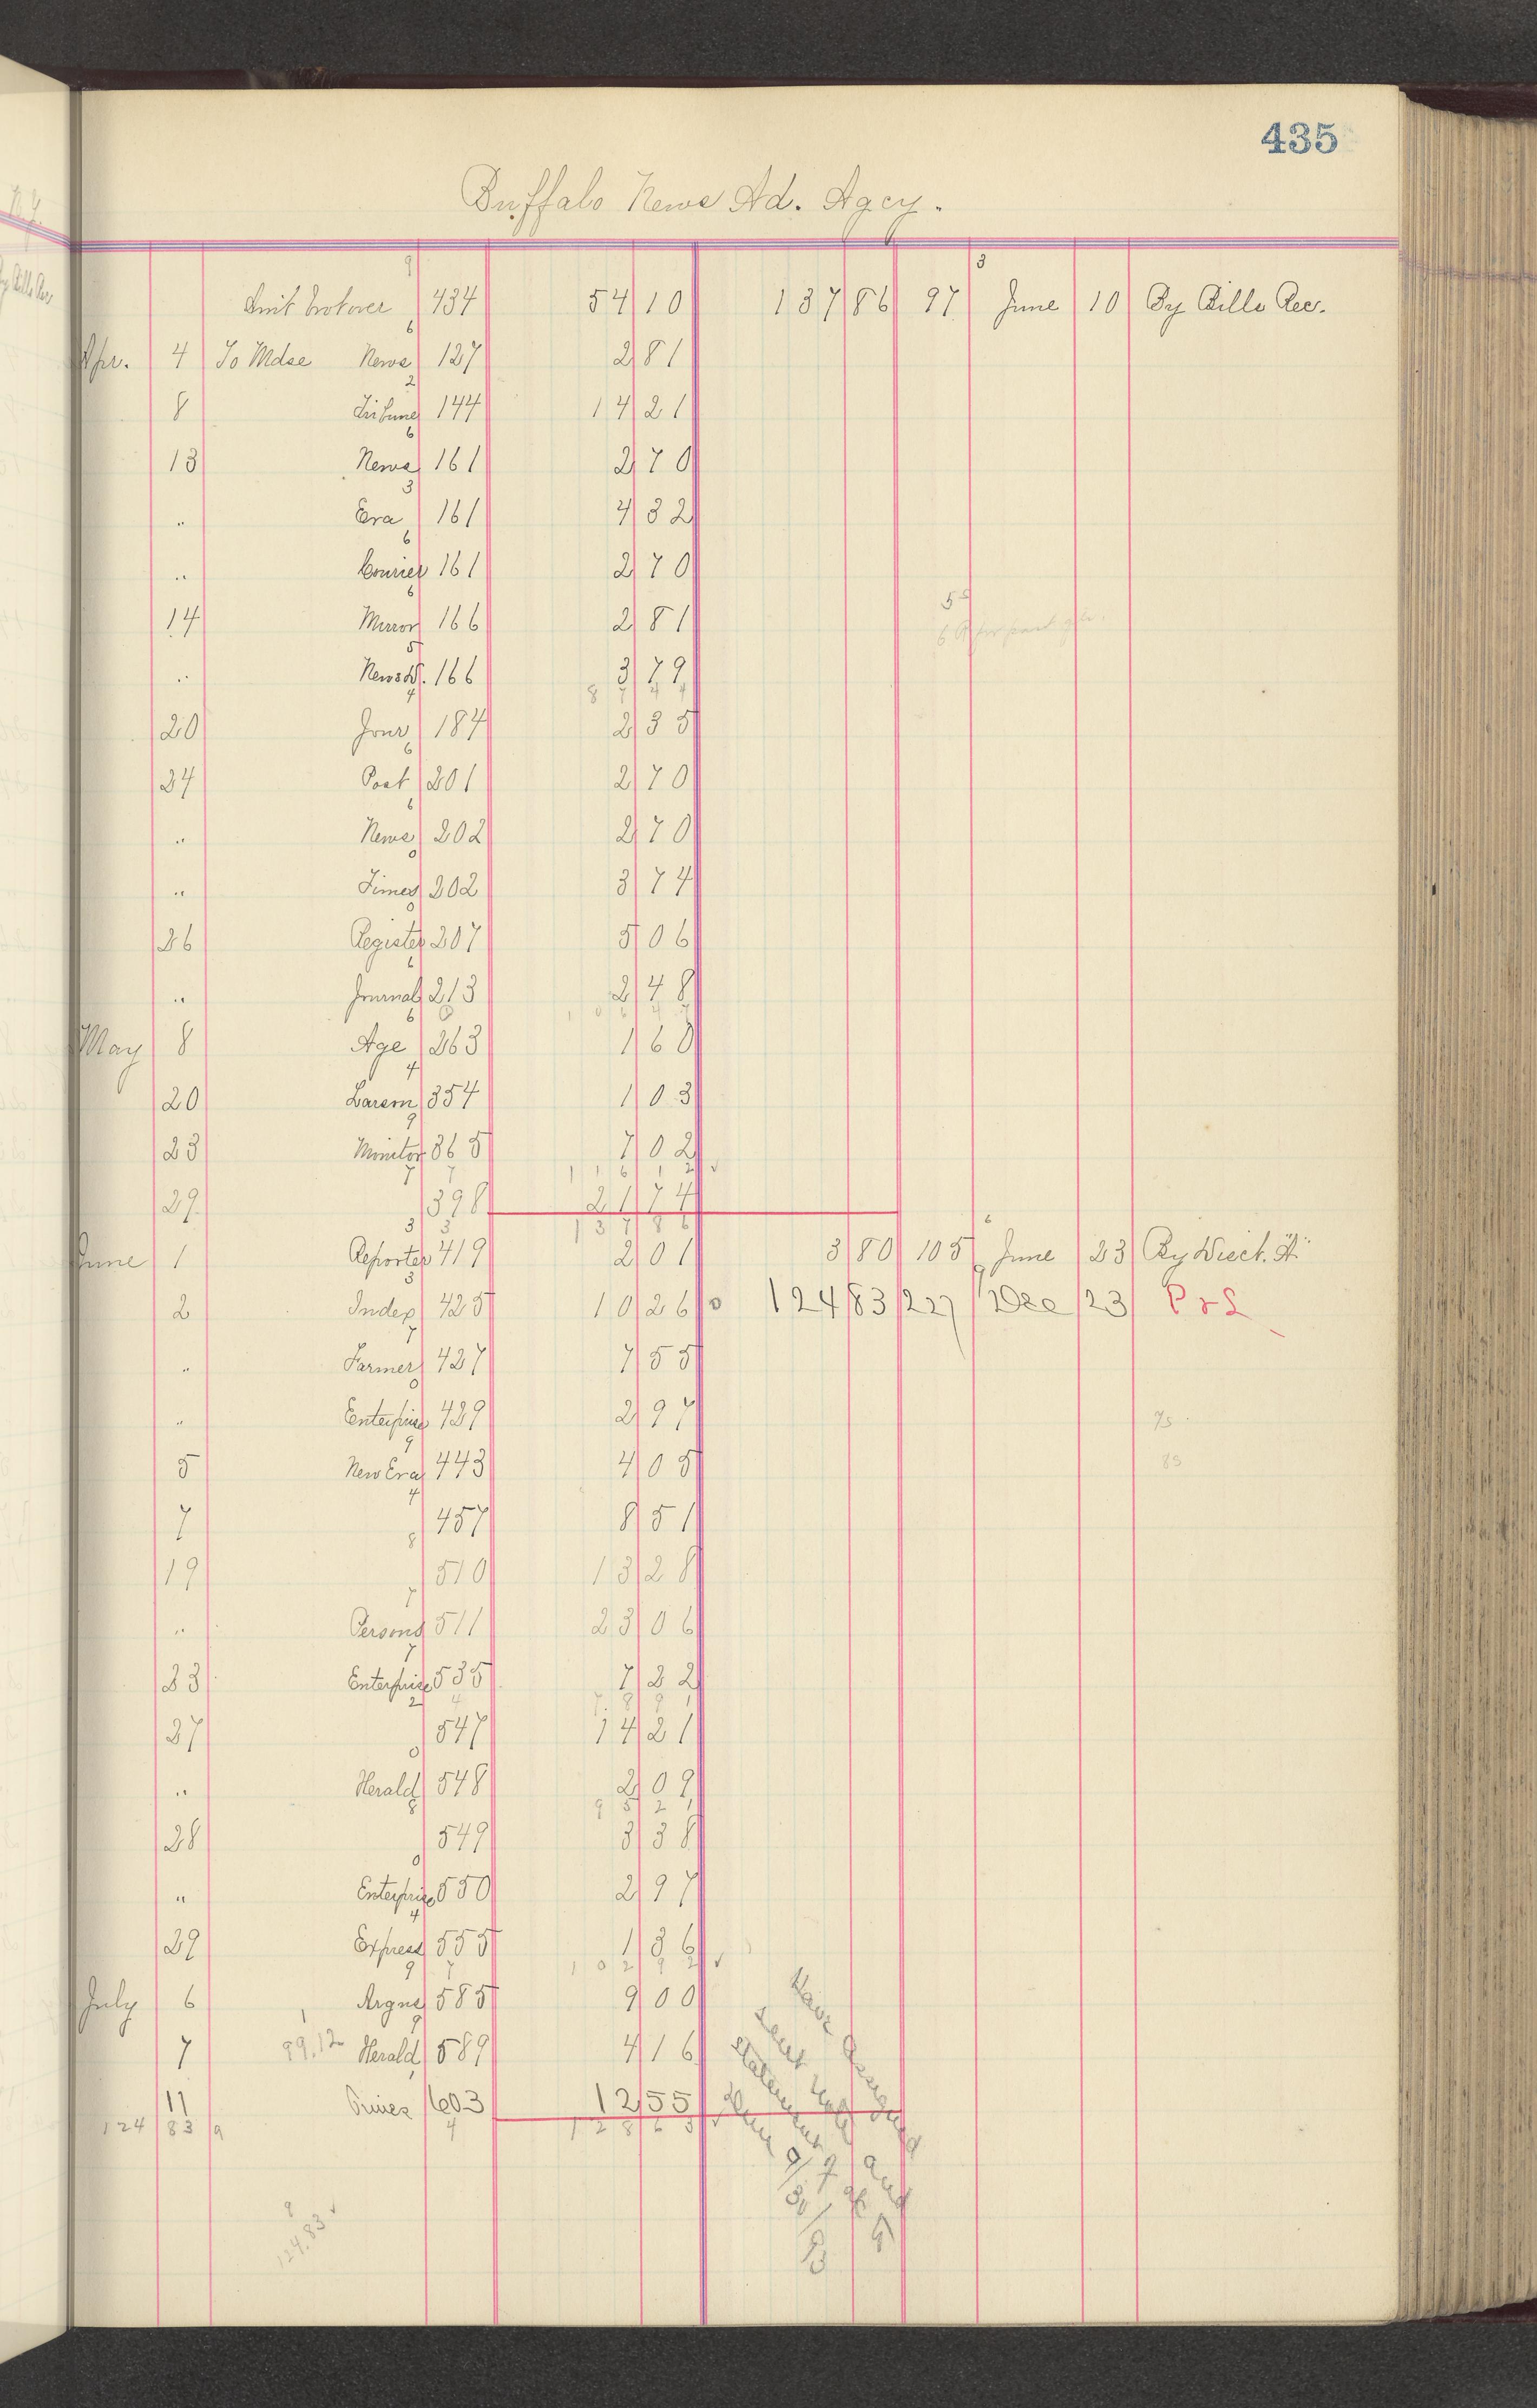 435
Buffalo News Ad. Agcy.
Amt brotover 434 54 10 137 86 97 June 10 By Bills Rec.
Apr. 4 To Mdse News 127 2 81
8 Tribune 144 14 21
13 News 161 2 70
" Era 161 4 32
" Courier 161 2 70
14 Mirror 166 2 81
" News 166 3 79
87 44
20 Jour 184 2 35
24 Post 201 2 70
" News 202 2 70
" Times 202 3 74
26 Register 207 5 06
" Journal 213 2 48
May 8 Age 263 1 60
20 354 1 03
23 Monitor 365 7 02
116 12
29 398 21 74
137 86
June 1 Reporter 419 2 01 3 80 105 June 23 By Disct. &
2 Index 425 10 26 124 83 227 Dec 23 P & L
" Farmer 427 7 55
" Enterprise 429 2 97
5 New Era 443 4 05
7 457 8 51
19 510 13 28
" Persons 511 23 06
23 Enterprise 535 7 22
78 91
27 547 14 21
" Herald 548 2 09
95 21
28 549 3 38
" Enterprise 550 2 97
29 Express 555 1 36
102 92
July 6 Argus 585 9 00
7 99.12 Herald 589 4 16
11 603 12 55
124 83 128 63
Have
sent
statement
124.83